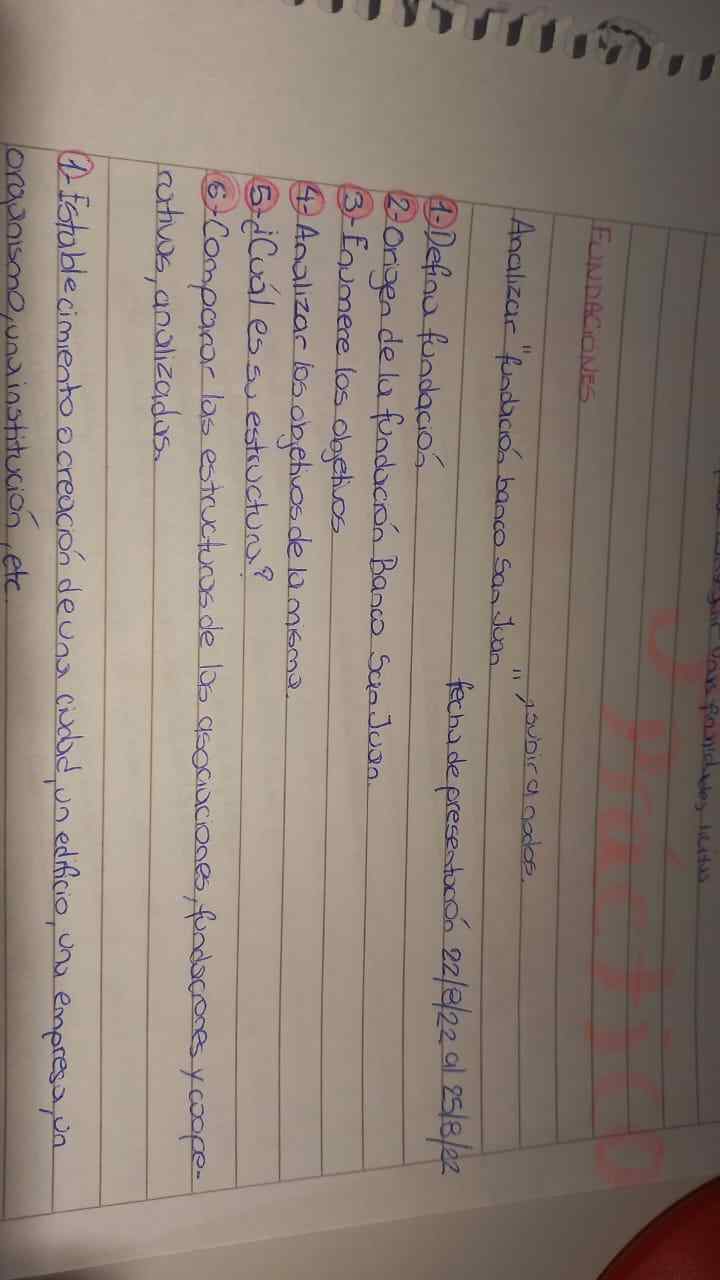 Práctico
FUNDACIONES
Analizar "fundación banco San Juan", subir a nodos.
fecha de presentación 22/8/22 al 25/8/22
1- Defina fundación
2- Origen de la fundación Banco San Juan.
3- Enumere los objetivos
4- Analizar los objetivos de la misma.
5- ¿Cuál es su estructura?
6- Comparar las estructuras de las asociaciones, fundaciones y coope-
rativas, analizadas.
1- Establecimiento o creación de una ciudad, un edificio, una empresa, un
organismo, una institución, etc.